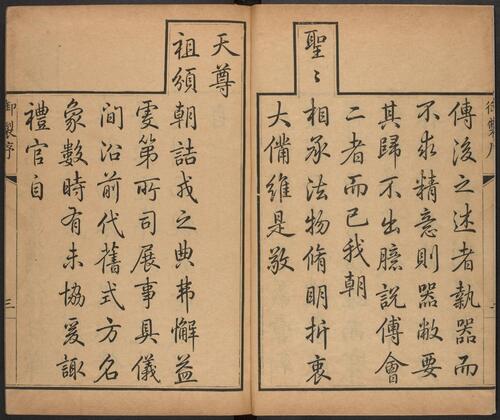 傳後之述者執器而
不求精意則器敝要
其歸不出臆說傅會
二者而已我朝
聖〻相承法物脩明折衷
大備維是敬
天尊
祖頒朝詰戎之典弗懈益
虔第所司展事具儀
間沿前代舊式方名
象數時有未協爰諏
禮官自
御製序
三